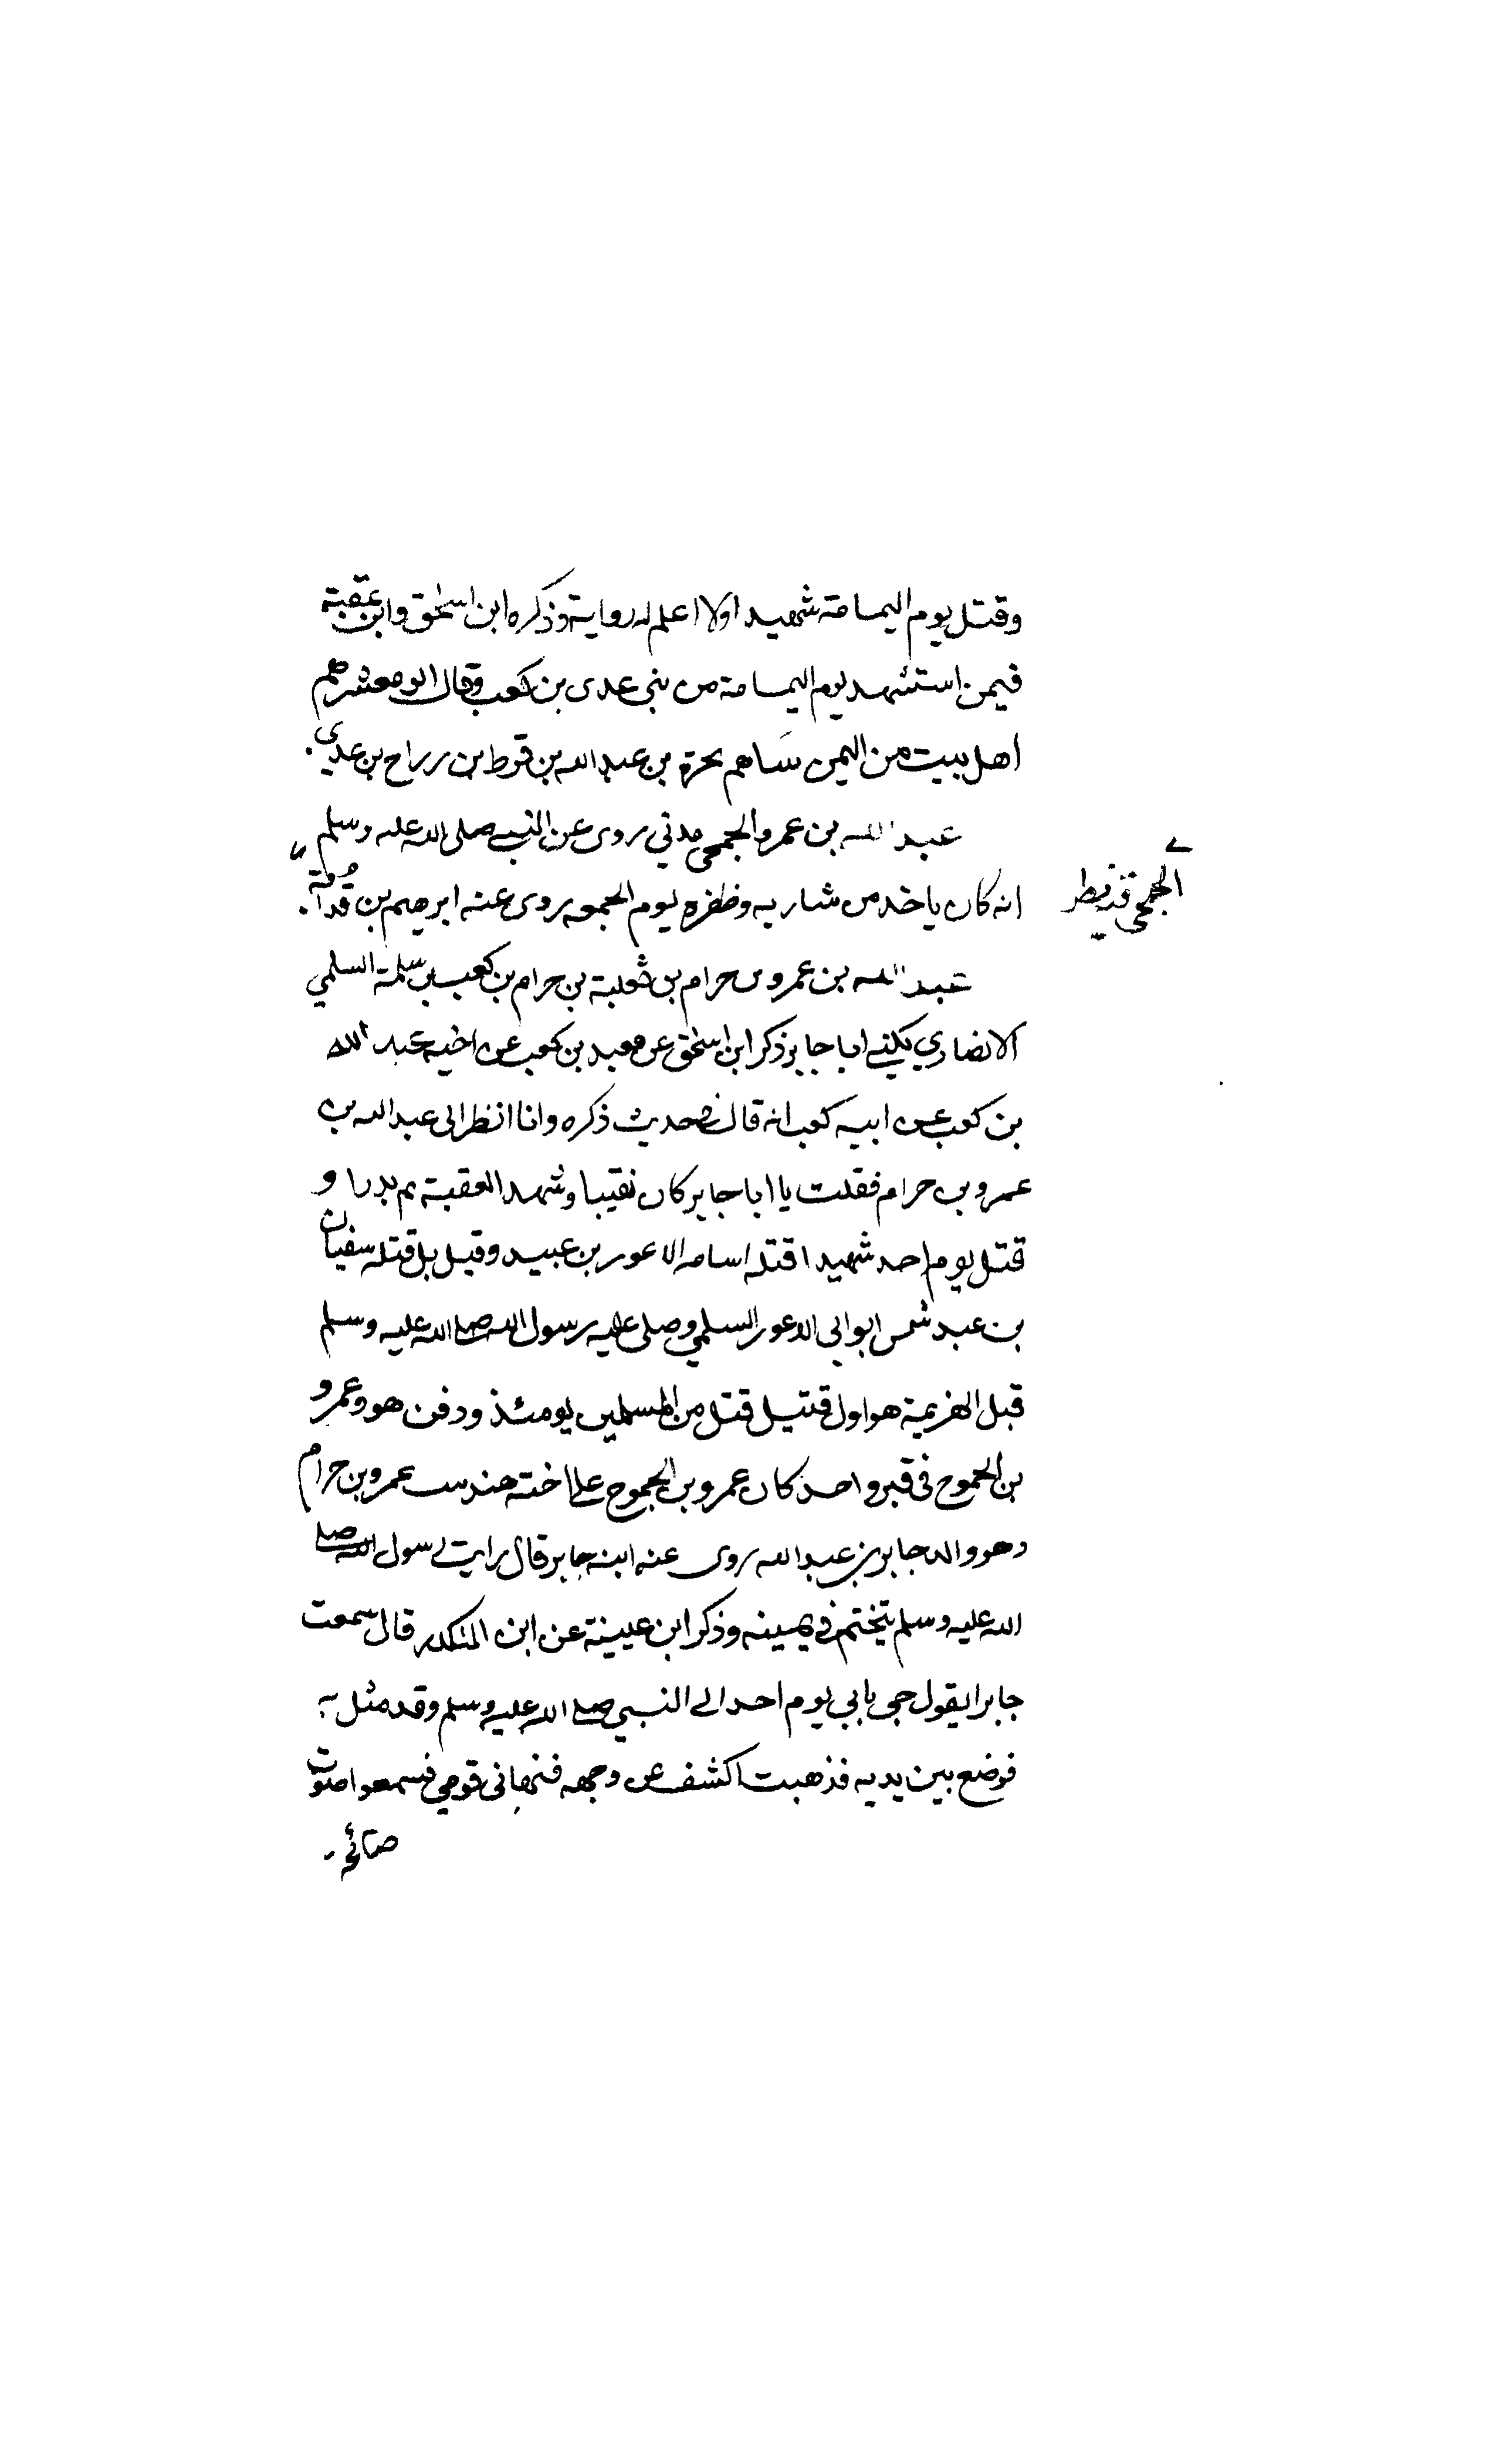 وقتل يوم اليمامة شهيدا ولا اعلم له رواية وذكره ابن اسحق وابن عقبة
فيمن استشهد يوم اليمامة من بني عدى بن كعب وقال ابو معشر هم
اهل بيت من اليمن ساهم بحرة بن عبد الله بن قرط بن رراح بن عدي
عبد الله بن عمرو الجمحي مدني روى عن النبي صلى الله عليه وسلم
انه كان ياخذ من شاربه وظفره يوم الجمعه روى عنه ابرهيم بن قدامة
الجمحي
عبد الله بن عمرو بن حرام بن ثعلبة بن حرام بن كعب بن سلمة السلمي
الانصاري يكنى ابا جابر ذكر ابن اسحق عن معبد بن كعب عن اخيه عبد الله
بن كعب عن ابيه كعب انه قال في حديث ذكره وانا انظر الى عبد الله بن
عمرو بن حرام فقلت يا ابا جابر كان نقيبا وشهد العقبة ثم بدرا و
قتل يوم احد شهيدا قتله اسامه الاعور بن عبيد وقيل بل قتله سفيان
بن عبد شمس ابو ابي الاعور السلمي وصلى عليه رسول الله صلى الله عليه وسلم
قبل الهزيمة هو اول قتيل قتل من المسلمين يومئذ ودفن هو وعمرو
بن الجموح في قبر واحد كان عمرو بن الجموح على اخته هند بنت عمرو بن حرام
وهو والد جابر بن عبد الله روى عنه ابنه جابر قال رايت رسول الله صلى
الله عليه وسلم يتختم في يمينه وذكر ابن عيينة عن ابن المنكدر قال سمعت
جابرا يقول جى بابي يوم احد الى النبي صلى الله عليه وسلم وقد مثل به
فوضع بين يديه فذهبت اكشف عن وجهه فنهاني قومي فسمعوا صوت
صائحة